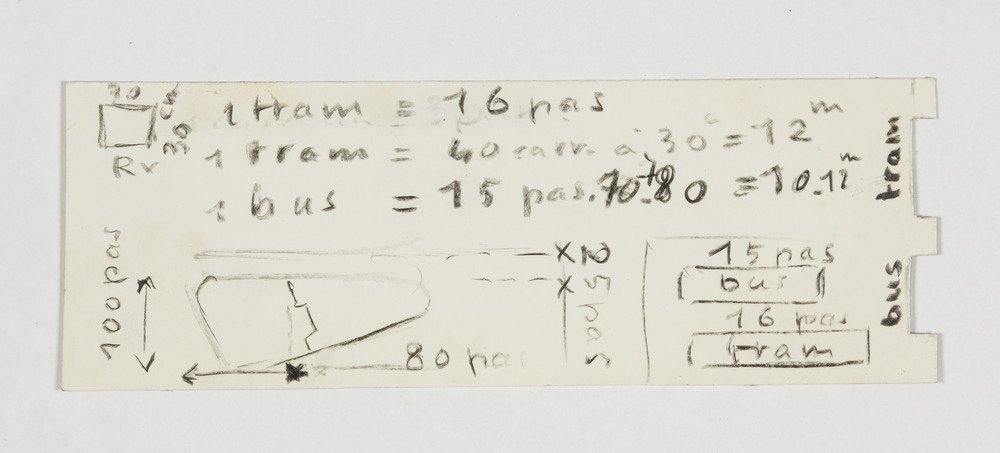 1 tram = 16 pas
1 tram = 40 carr. à 30 = 12 m
1 bus = 15 pas. 70+80 = 10.12 m
30
Rv
100 pas
80 pas
15 pas
bus
16 pas
tram
tram
bus